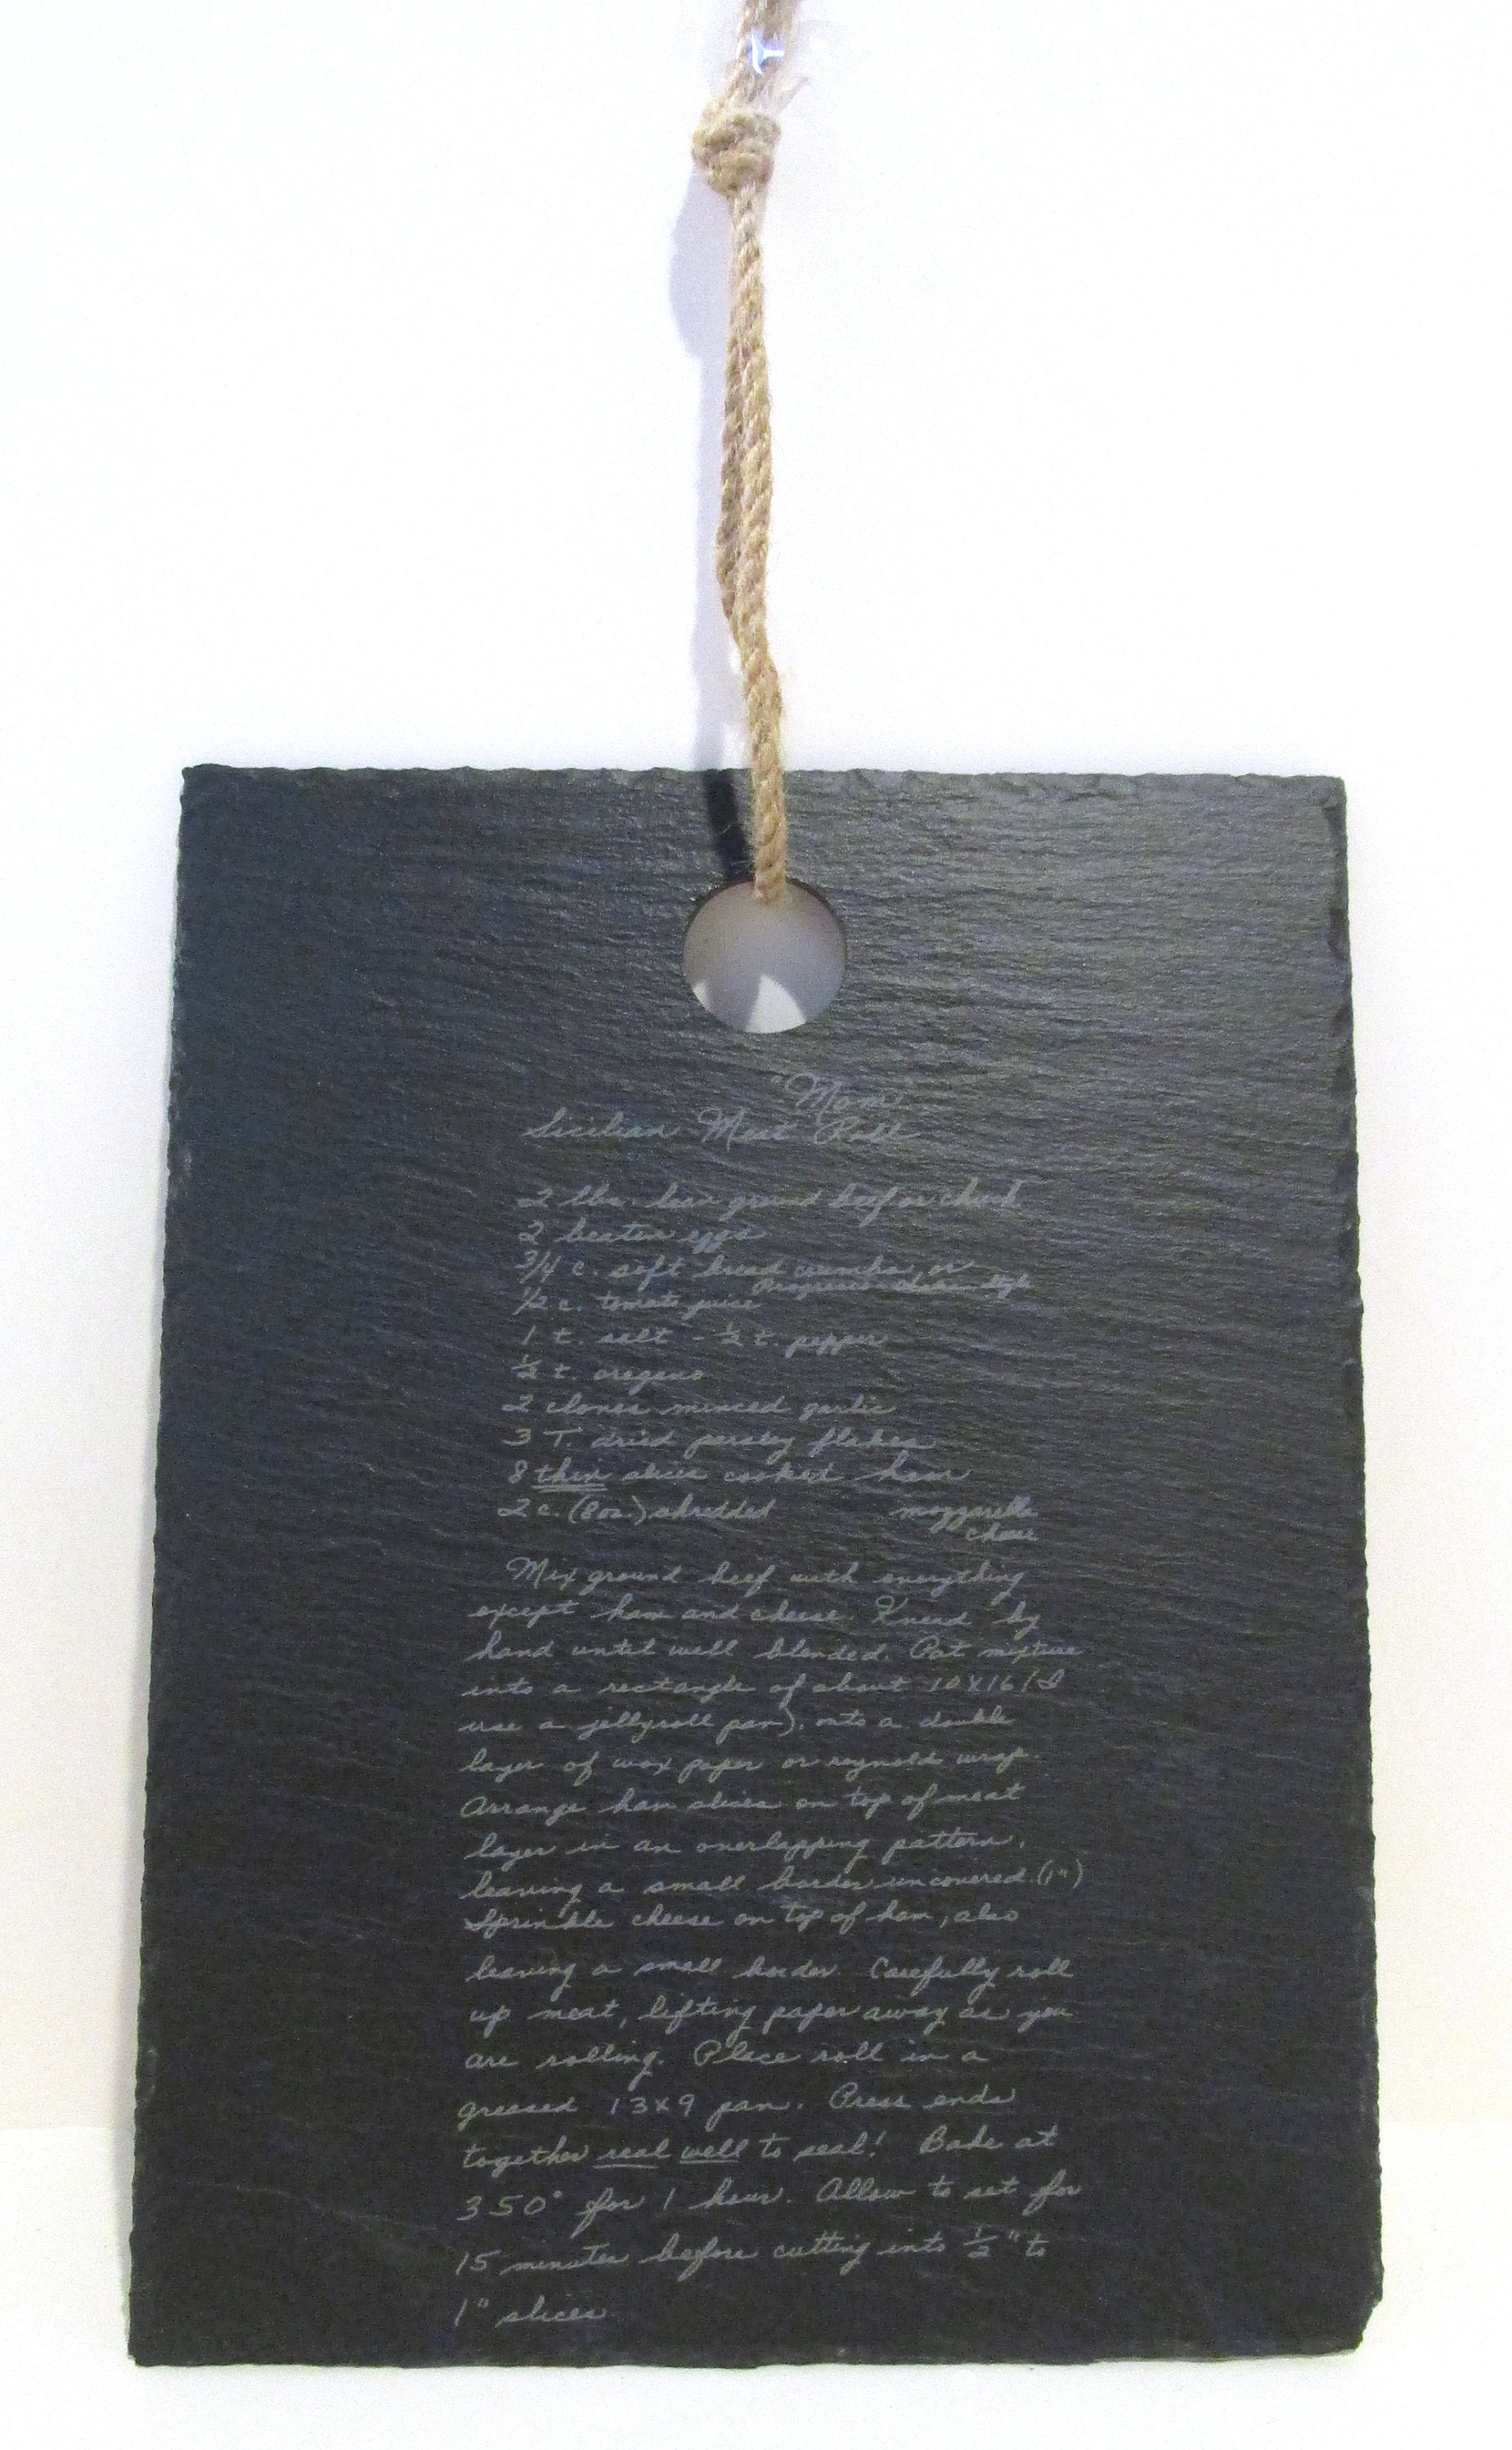 "Mom
Sicilian Meat Roll
2 lbs. lean ground beef or chuck
2 beaten eggs
3/4 c. soft bread crumbs or
Progresso Italian style
1/2 c. tomato juice
1 t. salt - 1/2 t. pepper
1/2 t. oregano
2 cloves minced garlic
3 T. dried parsley flakes
8 thin slices cooked ham
2 c. (8oz.) shredded mozzarella
cheese
Mix ground beef with everything
except ham and cheese. Knead by
hand until well blended. Pat mixture
into a rectangle of about 10X16 (I
use a jellyroll pan), onto a double
layer of wax paper or reynolds wrap.
Arrange ham slices on top of meat
layer in an overlapping pattern,
leaving a small border uncovered. (1")
Sprinkle cheese on top of ham, also
leaving a small border. Carefully roll
up meat, lifting paper away as you
are rolling. Place roll in a
greased 13x9 pan. Press ends
together real well to seal! Bake at
350° for 1 hour. Allow to set for
15 minutes before cutting into 1/2" to
1" slices.